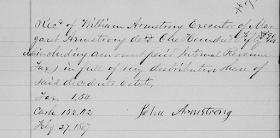 Recd of William Armstrong Executor of Mar-
garet Armstrong decd One Hundred
(including amount paid Internal Revenue
Tax) in full of my distributive share of
said decedents estate,
Tax 1.54
Cash 152.02 John Armstrong
Feby 27. 1867